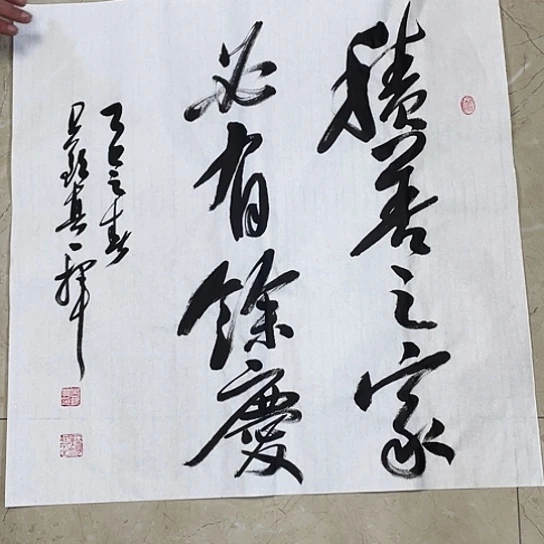 積善之家
必有餘慶
乙巳之春
吳顯真一揮